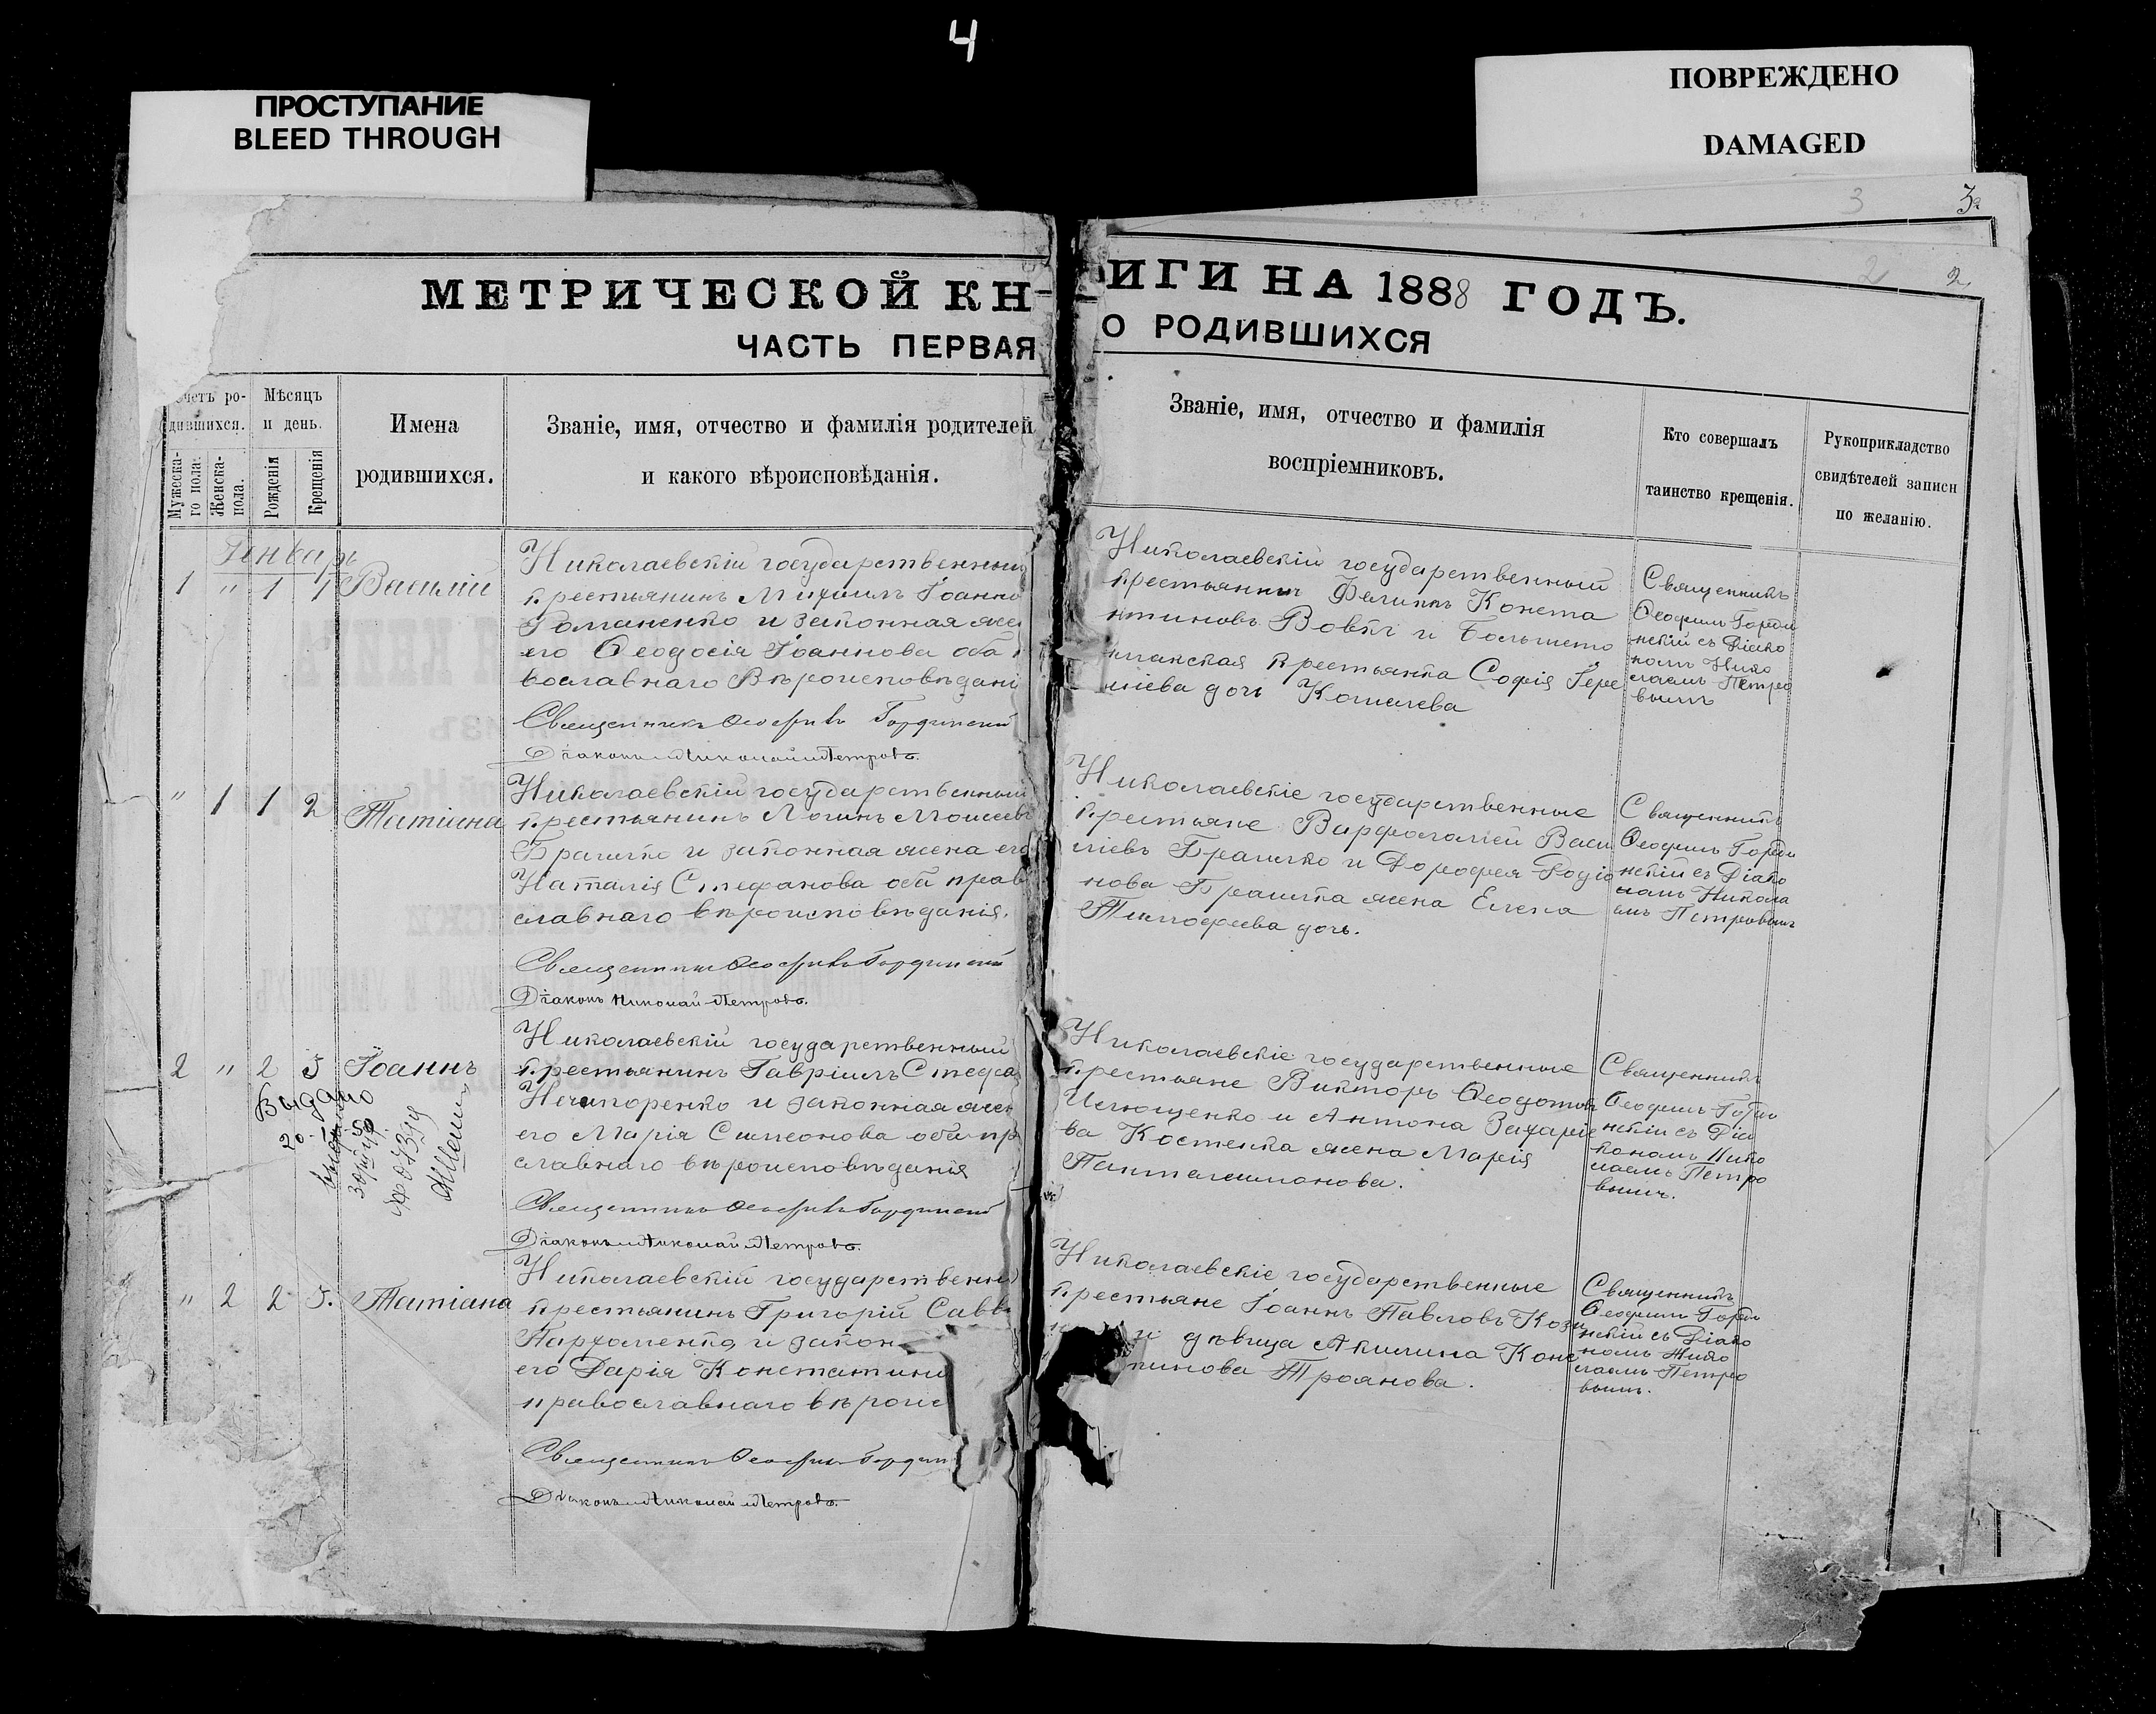 4
ПРОСТУПАНИЕ
BLEED THROUGH
ПОВРЕЖДЕНО
DAMAGED
3
3
2
2
МЕТРИЧЕСКОЙ КН
ИГИ НА 1888 ГОДЪ.
ЧАСТЬ ПЕРВАЯ
О РОДИВШИХСЯ
четъ ро-
дившихся.
Мужеска-
го пола.
Женска-
пола.
Мѣсяцъ
и день.
Рожденія
Крещенія
Имена
родившихся.
Званіе, имя, отчество и фамилія родителей
и какого вѣроисповѣданія.
Званіе, имя, отчество и фамилія
воспріемниковъ.
Кто совершалъ
таинство крещенія.
Рукоприкладство
свидѣтелей записи
по желанію.
Генварь
1 " 1 1 Василій
Николаевскій государственный
крестьянинъ Михаилъ Іоанно
Романенко и законная жен
его Ѳеодосія Іоаннова оба
вославнаго Вѣроисповѣдані
Священникъ Ѳеофилъ Гординскій
Діаконъ Николай Петровъ.
Николаевскій государственный
крестьянинъ Филипъ Конста
нтиновъ Вовкъ и
крестьянка Софія Іере
міева дочь Кошелева
Священникъ
Ѳеофилъ Горди
нскій съ Діако
номъ Нико
лаемъ Петро
вымъ
" 1 1 2 Татіана
Николаевскій государственный
крестьянинъ Логинъ Моисеев
Брашко и законная жена его
Наталія Стефанова оба прав
славнаго вѣроисповѣданія.
Священникъ Ѳеофилъ Гординскій
Діаконъ Николай Петровъ.
Николаевскіе государственные
крестьяне Варфоломей Васи
ліевъ Брашко и Дорофея Родіо
нова Брашка жена Елена
Тимофеева дочь.
Священникъ
Ѳеофилъ Горди
нскій съ Діако
номъ Никола
емъ Петровымъ
2 " 2 5 Іоаннъ
Выдано
Николаевскій государственный
крестьянинъ Гавріилъ Стефа
Нечипоренко и законная жен
его Марія Симеонова оба пр
славнаго вѣроисповѣданія
Священникъ Ѳеофилъ Гординскій
Діаконъ Николай Петровъ.
Николаевскіе государственные
крестьяне Викторъ Ѳеодотов
Ильющенко и Антона Захаріе
ва Костенка жена Марія
Пантелеимонова.
Священникъ
Ѳеофилъ Горди
нскій съ Діа
кономъ Нико
лаемъ Петро
вымъ.
" 2 2 5. Татіана
Николаевскій государственны
крестьянинъ Григорій Савв
Пархоменко и закон
его Дарія Константино
православнаго вѣроис
Священникъ Ѳеофилъ Гордин
Діаконъ Николай Петровъ.
Николаевскіе государственные
крестьяне Іоаннъ Павловъ Кози
и дѣвица Акилина Конс
тинова Троянова.
Священникъ
Ѳеофилъ Горди
нскій съ Діако
номъ Нико
лаемъ Петро
вымъ.